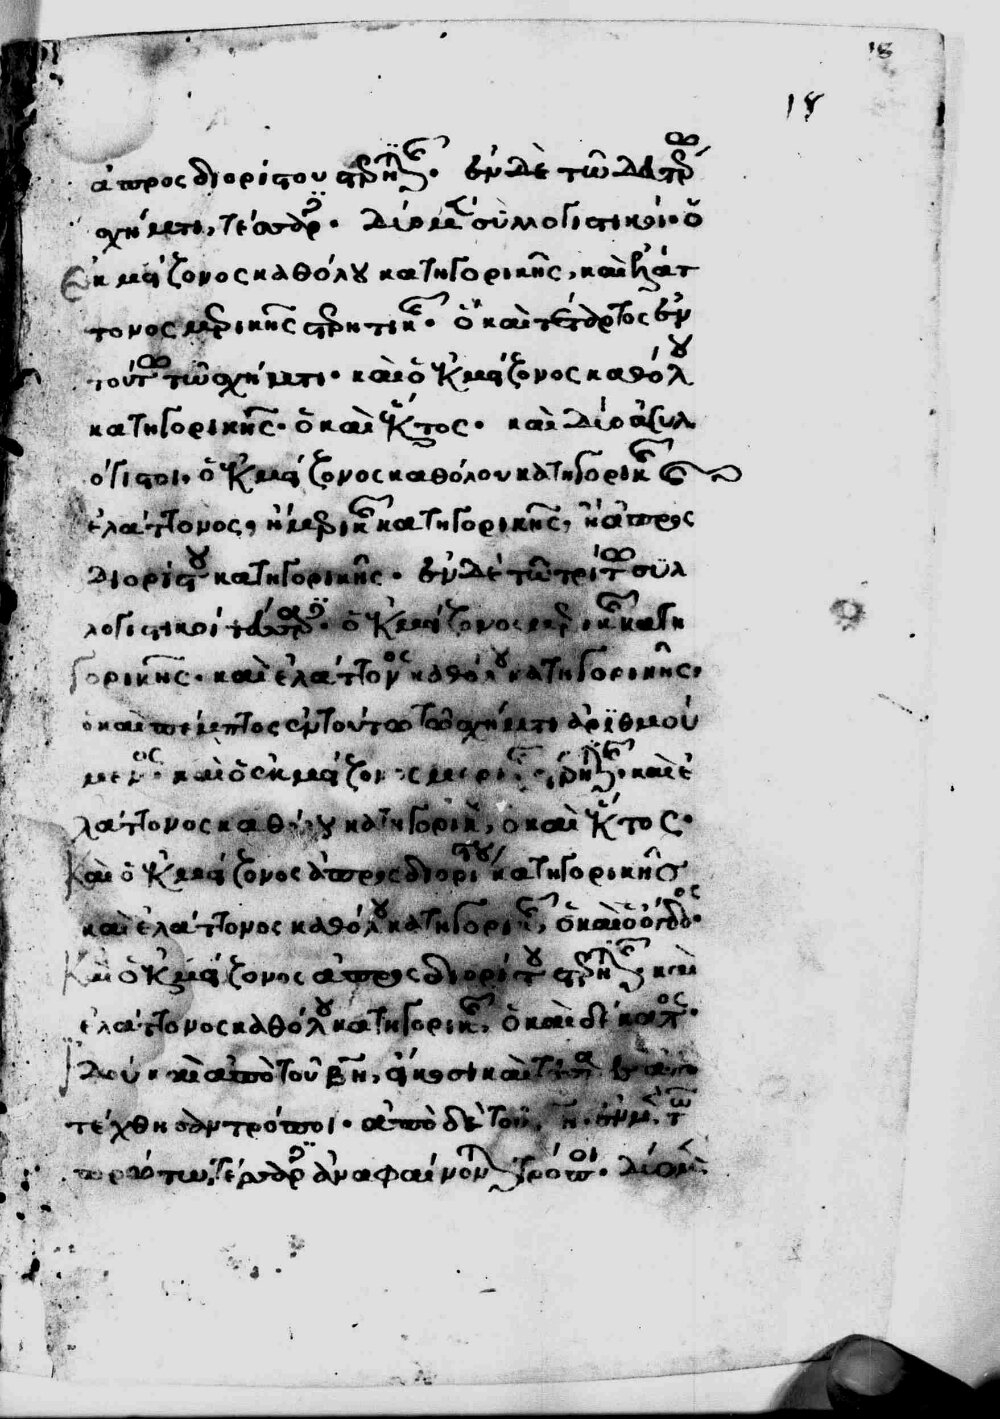 18
18
ἀπροσδιορίστου στερητικῆς. ἐν δὲ τῶ δευτέρω
σχήματι, τέσσαρες. δύο μὲν συλλογιστικοί. ὁ
ἐκ μείζονος καθόλου κατηγορικῆς, καὶ ἐλάτ
τονος μερικῆς στερητικῆς. ὁ καὶ τέταρτος ἐν
τούτω τῶ σχήματι. καὶ ὁ ἐκ μείζονος καθόλου
κατηγορικῆς. ὁ καὶ ἕκτος. καὶ δύο ἀσυλ
λόγιστοι. ὁ ἐκ μείζονος καθόλου κατηγορικῆς
ἐλάττονος, ἢ μερικῆς κατηγορικῆς, ἢ ἀπροσ
διορίστου κατηγορικῆς. ἐν δὲ τῶ τρίτω συλ
λογιστικοὶ τέσσαρες. ὁ ἐκ μείζονος μερικῆς κατη
γορικῆς. καὶ ἐλάττονος καθόλου κατηγορικῆς.
ὁ καὶ πέμπτος ἐν τούτω τῶ σχήματι ἀριθμού
μενος. καὶ ὁ ἐκ μείζονος μερικῆς στερητικῆς. καὶ ἐ
λάττονος καθόλου κατηγορικῆς, ὁ καὶ ἕκτος.
Καὶ ὁ ἐκ μείζονος ἀπροσδιορίστου κατηγορικῆς
καὶ ἐλάττονος καθόλου κατηγορικῆς, ὁ καὶ ὄγδοος.
Καὶ ὁ ἐκ μείζονος ἀπροσδιορίστου στερητικῆς καὶ
ἐλάττονος καθόλου κατηγορικῆς, ὁ καὶ δέκατος.
καὶ ἀπὸ τοῦ εἴκοσι καὶ
τέχθησαν τρόποι. ἀπὸ δὲ τοῦ
τέσσαρες ἀναφαίνονται τρόποι. δύο μὲν